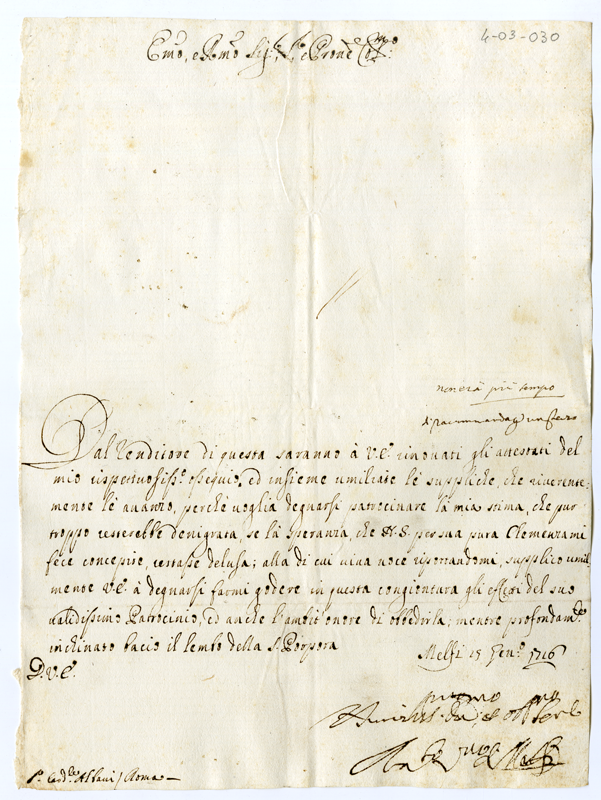 4-03-030
Emo, e Rmo Sig.r, Sre e Prone Colmo
non era più tempo
di raccommandar un
Dal Venditore di questa saranno à V.E. rinovati gli attestati del
mio rispettuosiss.o ossequio, ed insieme umiliate le suppliche, che riverente:
mente le avanzo, perchè voglia degnarsi patrocinare la mia stima, che pur
troppo resterebbe denigrata, se la speranza, che N.S. per sua pura Clemenza mi
fece concepire, restasse delusa; alla di cui viva voce riportandomi, supplico umil
mente V.E. à degnarsi farmi godere in questa congiontura gli effetti del suo
validissimo Patrocinio, ed anche l'ambit'onore di obbedirla; mentre profondam.te
inchinato bacio il lembo della S. Porpora
Melfi 15 Gen.o 1716
D.V.E.
S.r Card.le Albani / Roma